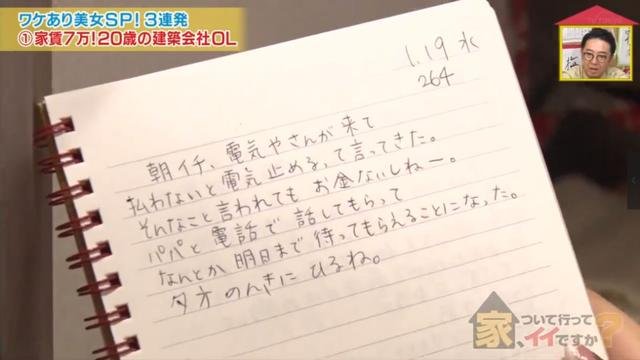 ワケあり美女SP!3連発
①家賃7万!20歳の建築会社OL
1.19 水
264
朝イチ、電気やさんが来て
払わないと電気止める、って言ってきた。
そんなこと言われてもお金ないしねー。
パパと電話で話してもらって
なんとか明日まで待ってもらえることになった。
夕方のんきにひるね。
家、ついて行ってイイですか?